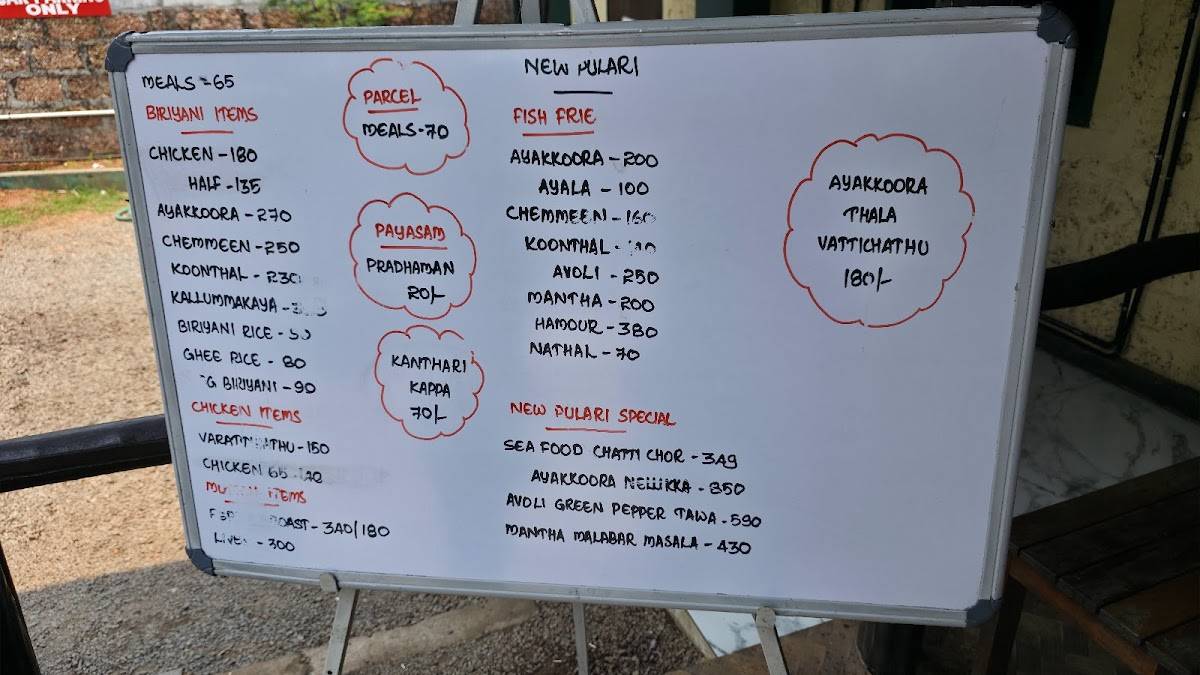 ONLY
MEALS = 65
BIRIYANI ITEMS
CHICKEN - 180
HALF - 135
AYAKKOORA - 270
CHEMMEEN - 250
KOONTHAL - 230
KALLUMMAKAYA -
BIRIYANI RICE -
GHEE RICE - 80
BIRIYANI - 90
CHICKEN ITEMS
- 150
CHICKEN 65 -
ITEMS
- 340/180
- 300
PARCEL
MEALS - 70
PAYASAM
PRADHAMAN
20/-
KANTHARI
KAPPA
70/-
NEW PULARI
FISH FRIE
AYAKKOORA - 200
AYALA - 100
CHEMMEEN - 160
KOONTHAL -
AVOLI - 250
MANTHA - 200
HAMOUR - 380
NATHAL - 70
NEW PULARI SPECIAL
SEA FOOD CHATTI CHOR - 349
AYAKKOORA - 850
AVOLI GREEN PEPPER TAWA - 590
MANTHA MALABAR MASALA - 430
AYAKKOORA
THALA
VATTICHATHU
180/-